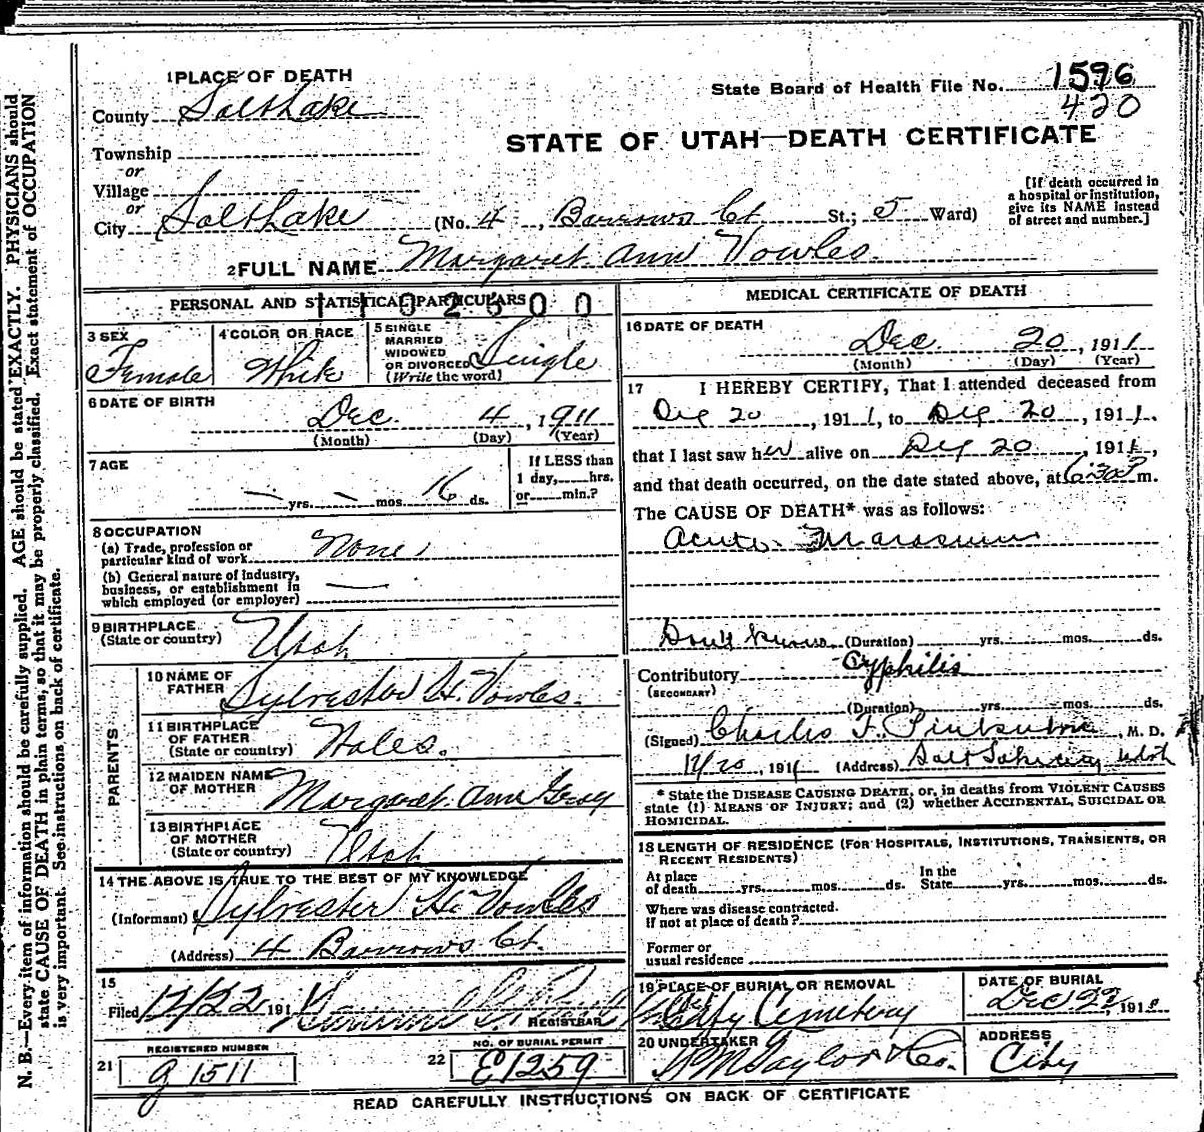 1 PLACE OF DEATH
County Salt Lake
State Board of Health File No. 1596
420
STATE OF UTAH—DEATH CERTIFICATE
Township
or
Village
or
City Salt Lake (No. 4, Barrows Ct St.; 5 Ward)
[If death occurred in
a hospital or institution,
give its NAME instead
of street and number.]
2 FULL NAME Margaret Ann Vowles.
PERSONAL AND STATISTICAL PARTICULARS
1102600
3 SEX
Female
4 COLOR OR RACE
White
5 SINGLE
MARRIED
WIDOWED
OR DIVORCED
(Write the word)
Single
6 DATE OF BIRTH
Dec. 4, 1911
(Month) (Day) (Year)
7 AGE
— yrs. — mos. 16 ds.
If LESS than
1 day,____hrs.
or____min.?
8 OCCUPATION
(a) Trade, profession or
particular kind of work None
(b) General nature of industry,
business, or establishment in
which employed (or employer) —
9 BIRTHPLACE
(State or country) Utah
PARENTS
10 NAME OF
FATHER Sylvester H. Vowles.
11 BIRTHPLACE
OF FATHER
(State or country) Wales.
12 MAIDEN NAME
OF MOTHER Margaret Ann Gray
13 BIRTHPLACE
OF MOTHER
(State or country) Utah
14 THE ABOVE IS TRUE TO THE BEST OF MY KNOWLEDGE
(Informant) Sylvester H. Vowles
(Address) 4 Barrows Ct.
15
Filed 12/22 191
REGISTRAR
21 REGISTERED NUMBER
g 1511
22 NO. OF BURIAL PERMIT
E1259
MEDICAL CERTIFICATE OF DEATH
16 DATE OF DEATH
Dec. 20, 1911
(Month) (Day) (Year)
17 I HEREBY CERTIFY, That I attended deceased from
Dec 20, 1911, to Dec 20, 1911,
that I last saw her alive on Dec 20, 1911,
and that death occurred, on the date stated above, at 6:30 P m.
The CAUSE OF DEATH* was as follows:
Acute Marasmus
Don't know (Duration) yrs. mos. ds.
Contributory Syphilis
(SECONDARY)
(Duration) yrs. mos. ds.
(Signed) Charles F. , M. D.
12/20, 1911 (Address) Salt Lake City Utah
* State the DISEASE CAUSING DEATH, or, in deaths from VIOLENT CAUSES
state (1) MEANS OF INJURY; and (2) whether ACCIDENTAL, SUICIDAL OR
HOMICIDAL.
18 LENGTH OF RESIDENCE (FOR HOSPITALS, INSTITUTIONS, TRANSIENTS, OR
RECENT RESIDENTS)
At place
of death yrs. mos. ds.
In the
State yrs. mos. ds.
Where was disease contracted.
If not at place of death?
Former or
usual residence
19 PLACE OF BURIAL OR REMOVAL
City Cemetery
DATE OF BURIAL
Dec 22, 1911
20 UNDERTAKER
S. M. Taylor & Co.
ADDRESS
City
READ CAREFULLY INSTRUCTIONS ON BACK OF CERTIFICATE
N. B.—Every item of information should be carefully supplied. AGE should be stated EXACTLY. PHYSICIANS should
state CAUSE OF DEATH in plain terms, so that it may be properly classified. Exact statement of OCCUPATION
is very important. See instructions on back of certificate.